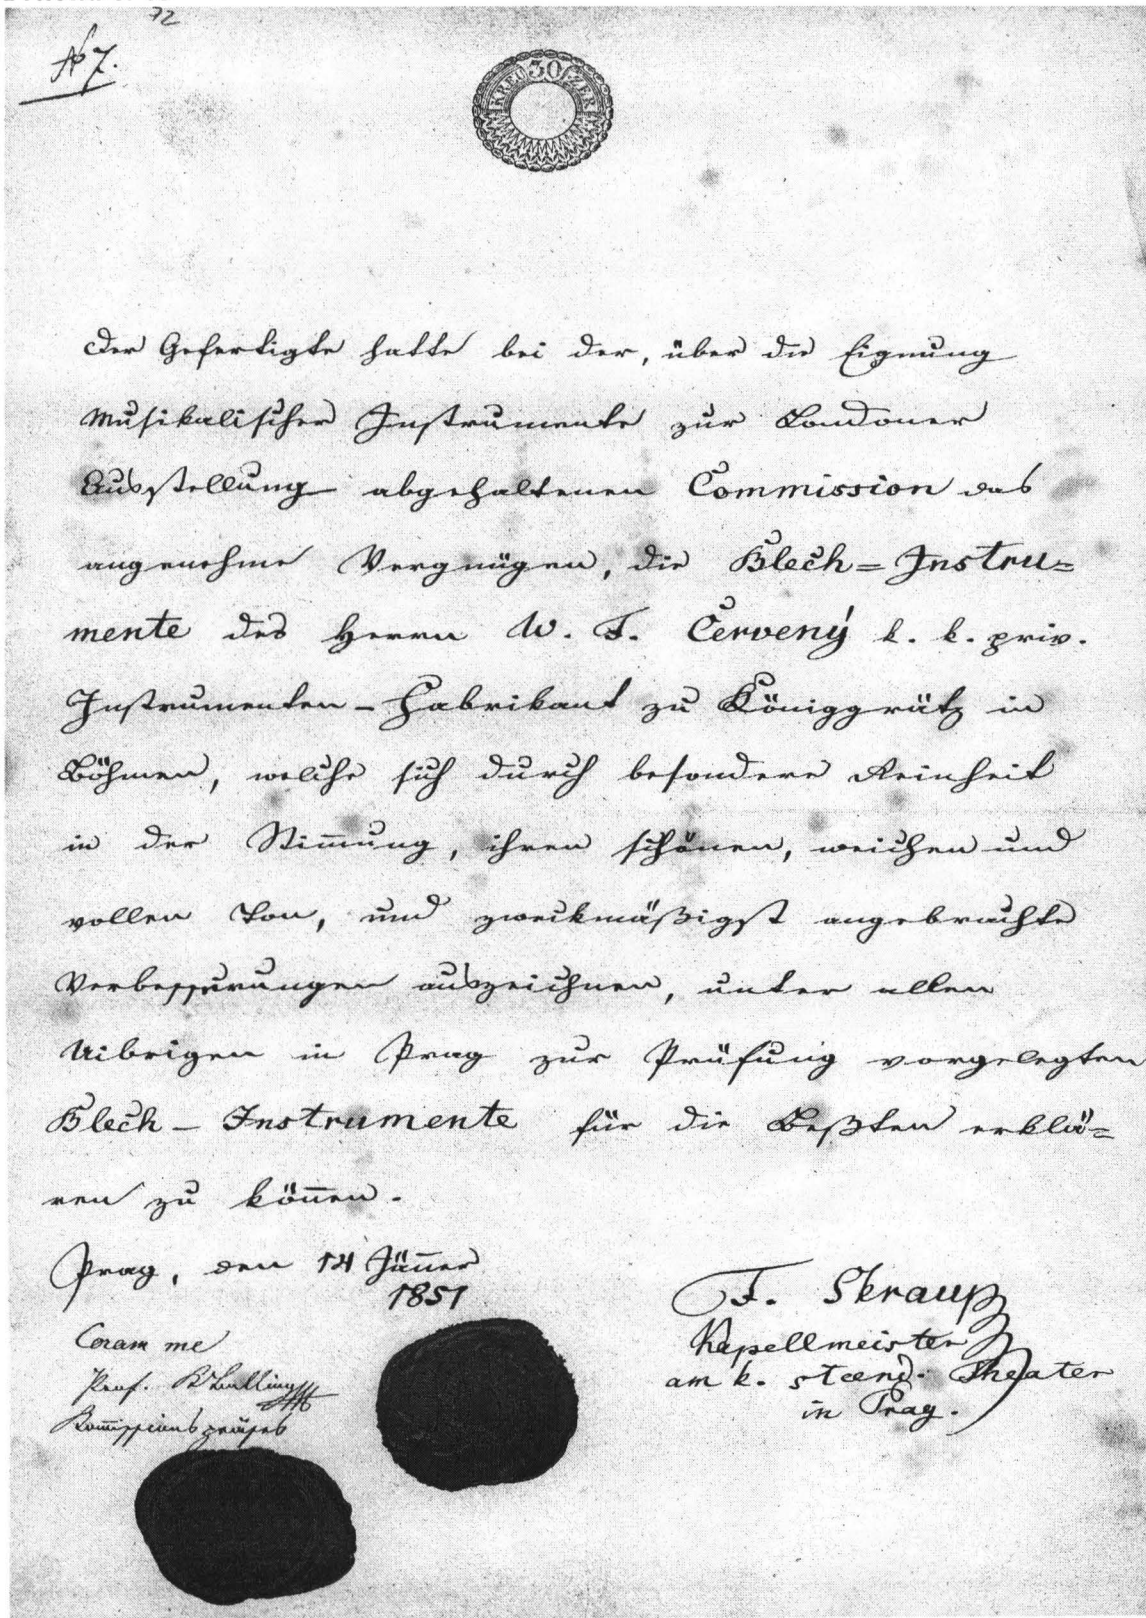 72
No 7.
30 KREUZER
Der Gefertigte hatte bei der, über die Eignung
Musikalischer Instrumente zur Londoner
Ausstellung abgehaltenen Commission das
angenehme Vergnügen, die Blech=Instru=
mente des Herrn W. F. Červený k. k. priv.
Instrumenten-Fabrikant zu Königgrätz in
Böhmen, welche sich durch besondere Reinheit
in der Stim̅ung, ihren schönen, weichen und
vollen Ton, und zweckmäßigst angebrachte
Verbesserungen auszeichnen, unter allen
Uibrigen in Prag zur Prüfung vorgelegten
Blech-Instrumente für die Beßten erklä=
ren zu kön̅en.
Prag, den 14 Jän̅er
1851
F. Skraup
Kapellmeister
am k. staend. Theater
in Prag.
Coram me
Prof. Balling
Kom̅issionspräses